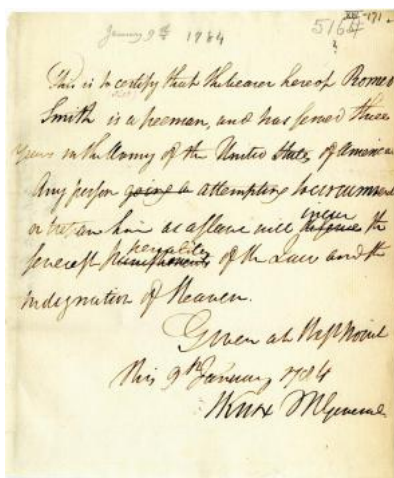 January 9th 1784
5164
This is to certify that the bearer hereof Romeo
Smith is a freeman, and has served three
years in the Army of the United States of America
Any person going or attempting to circumvent
or treat him as a slave will incur the
severest penalties punishments of the Laws and the
indignation of Heaven.
Given at West Point
this 9th January 1784
HKnox MGeneral